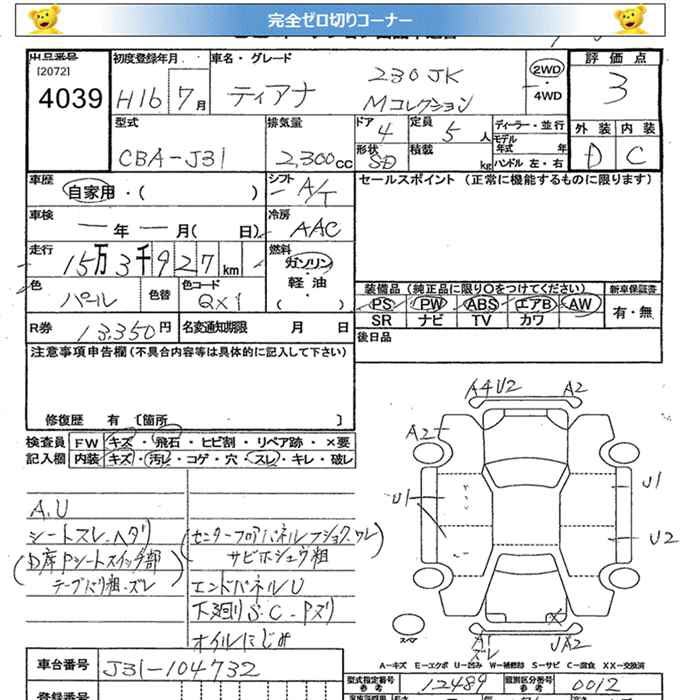 完全ゼロ切りコーナー
出品番号
[2072]
4039
初度登録年月
H16 7月
車名・グレード
ティアナ 230JK
Mコレクション
2WD
・
4WD
評価点
3
外装 内装
D C
型式
CBA-J31
排気量
2,300cc
ドア
4
定員
5人
形状
SD
積載
kg
ディーラー・並行
モデル年式 年
ハンドル 左・右
車歴
自家用・( )
シフト
A/T
セールスポイント (正常に機能するものに限ります)
車検
ー年ー月( 日)
冷房
AAC
走行
15万3千927km
燃料
ガソリン
・
軽油
( )
色
パール
色替
色コード
QX1
R券
13,350円
名変通知期限 月 日
装備品 (純正品に限り○をつけてください)
新車保証書
PS PW ABS エアB AW
SR ナビ TV カワ
有・無
後日品
注意事項申告欄(不具合内容等は具体的に記入して下さい)
修復歴 有 〔箇所 〕
検査員
記入欄
FW キズ・飛石・ヒビ割・リペア跡・×要
内装 キズ・汚レ・コゲ・穴・スレ・キレ・破レ
A.U
シートスレ.ヘタリ
(D席Pシートスイッチ部
テープ貼り粗.ズレ)
(センターフロアパネルフショク.ワレ
サビホシュウ粗)
エンドパネルU
下廻りS.C-Pズリ
オイルにじみ
A4U2 A2
A2
U1
U1
U2
スペア
A1
ズレ
X
UA2
A-キズ E-エクボ U-凹み W-補修跡 S-サビ C-腐食 XX-交換済
車台番号
J31-104732
型式指定番号
参考
12489
類別区分番号
参考
0012
登録番号